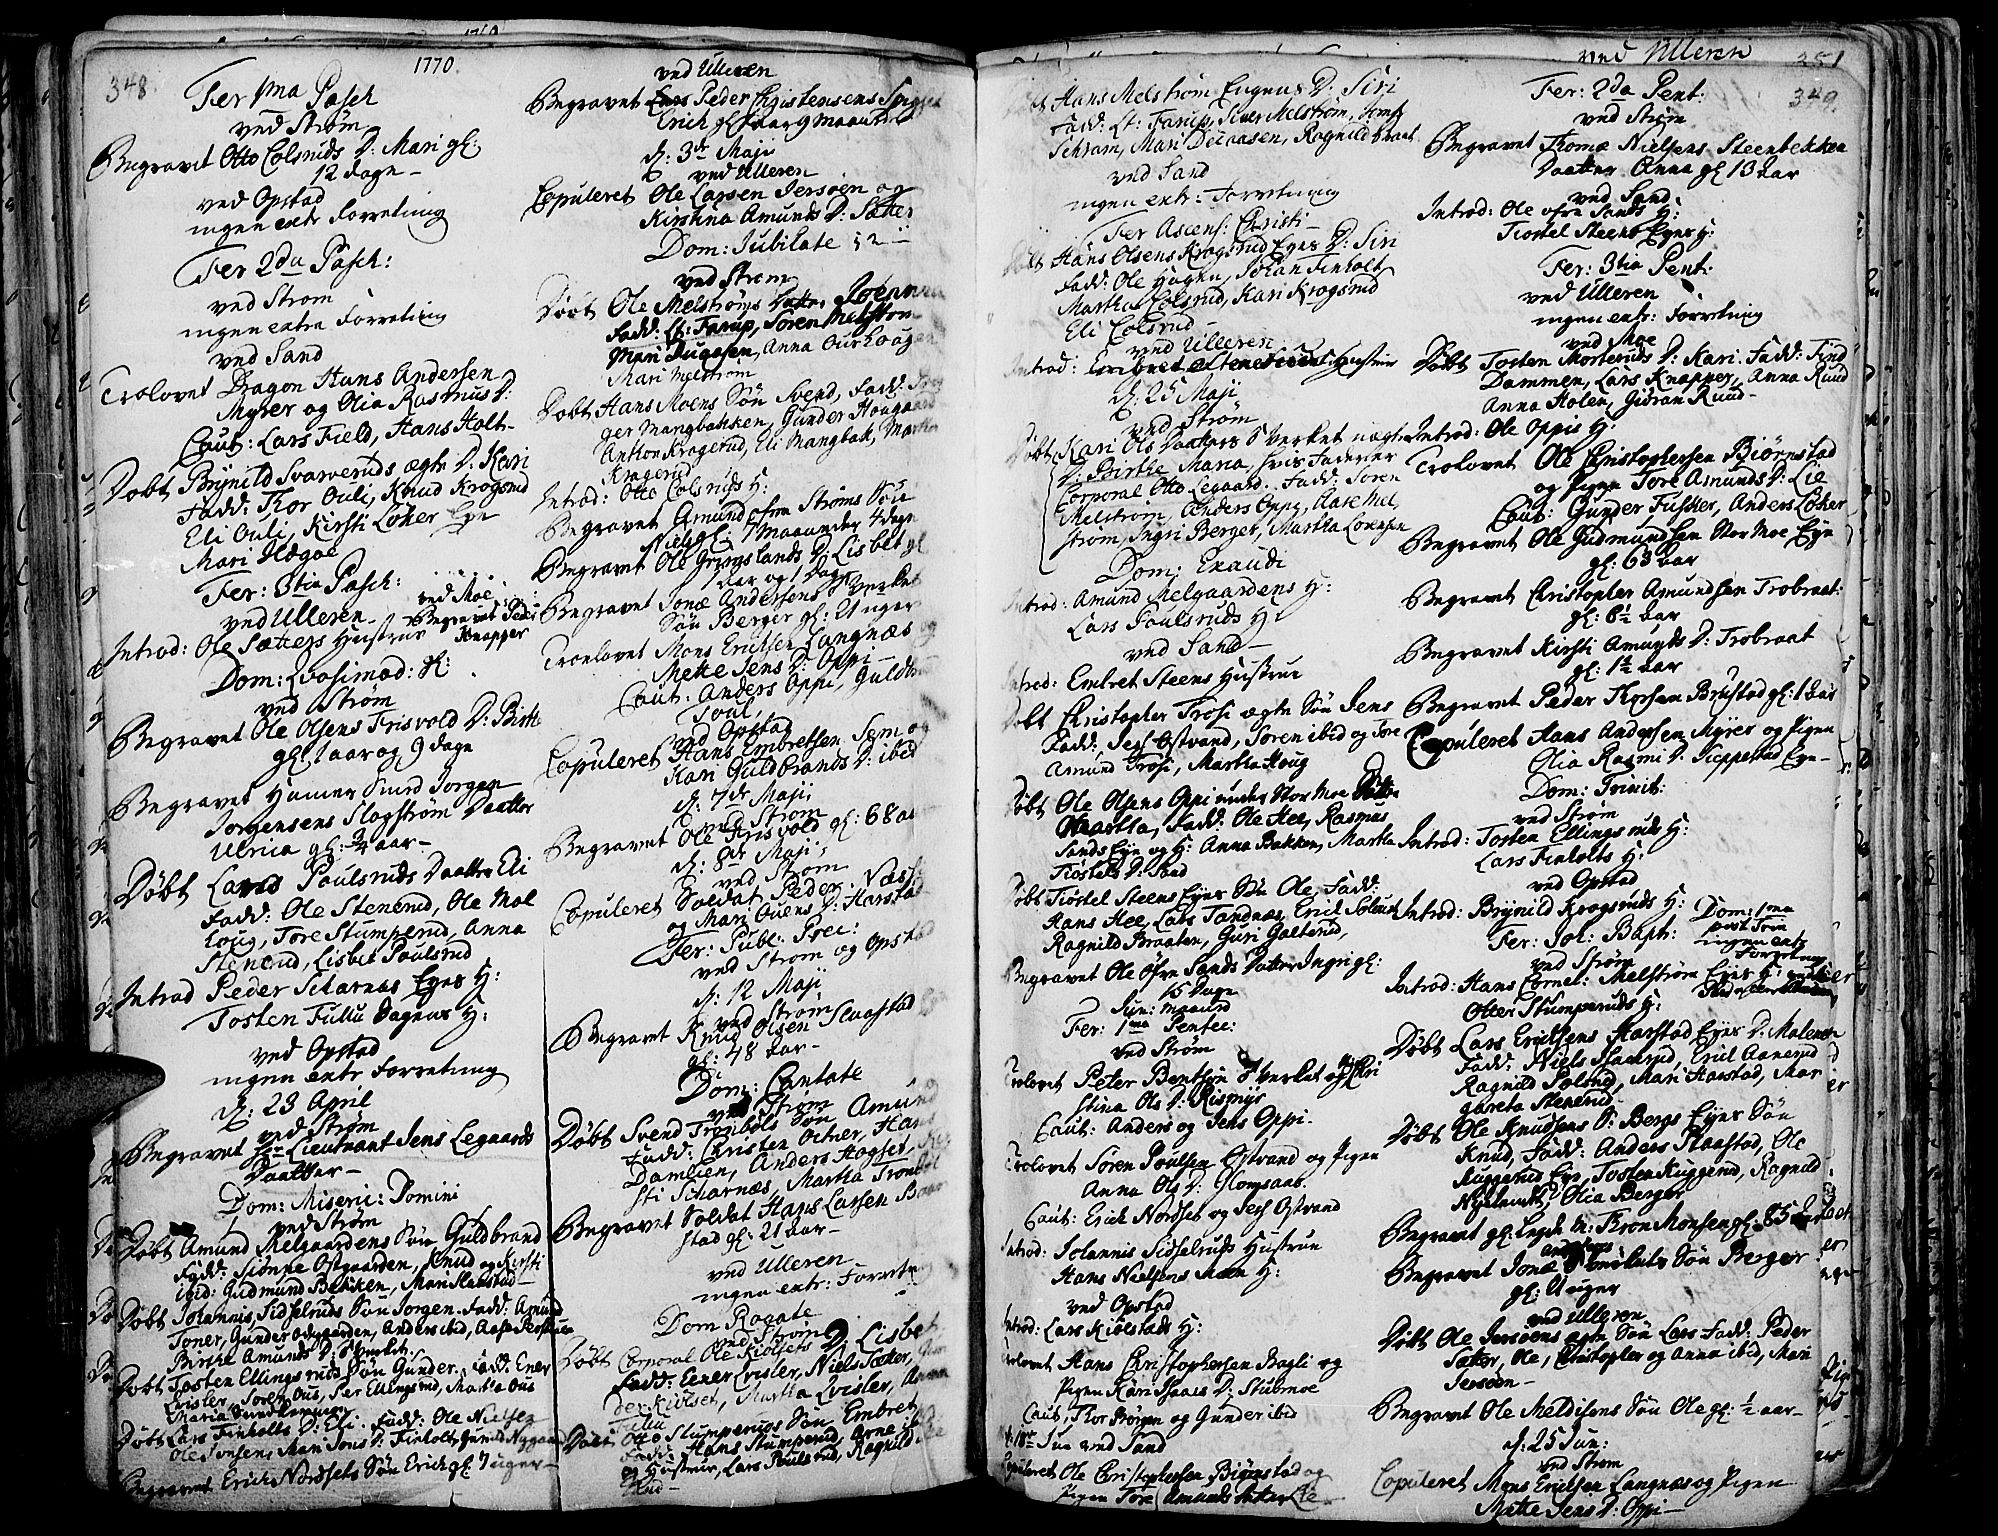 348.
1770.
Fer 1ma Pasch
ved Strøm
Begravet Otto Colsruds D: Mari gl:
12 dage -
ved Opstad
ingen extr Forretning
Fer 2da Pasch:
ved Strøm
ingen extra Forretning
ved Sand
Trolovet Dragon Hans Andersen
Myrer og Olia Rasmus D:
Caut: Lars Field, Hans Holt-
Døbt Brynild Svarveruds ægte D: Kari
Fadd: Thor Ouli, Knud Krogsrud
Eli Ouli, Kirsti Løker Eye
Mari
Fer: 3tia Pasch:
ved Ulleren
Introd: Ole Sætters Hustrue
ved Moe
Begravet Peder
Knapper
Dom: Qvasimod: gl:
ved Strøm
Begravet Ole Olsens Frisvold D: Birte
gl: 1 aar og 9 dage
Begravet Hamer Smed Jørgen
Jørgensens Slagstrøm Daatter
Ulrica gl: 3/4 aar-
Døbt Lars Poulsruds Daatter Eli
Fadd: Ole Stenerud, Ole Mel
houg, Tore Stumperud, Anna
Stenerud, Lisbet Poulsrud
Introd Peder Scharnæs Eyes H:
Tosten Fullu Dagens H:
ved Opstad
ingen extr Forretning
d: 23 April
ved Strøm
Begravet Hr Lieutnant Jens Legaards
Daatter-
Dom: Miseric: Domini
ved Strøm
Døbt Amund Melgaardens Søn Guldbrand
Fadd: Sionne Ostgaarden, Knud og Kirsti
ibid: Gudmund Bekken, Mari Slaastad-
Døbt Johannis Sidselruds Søn Jørgen. Fadd: Amund
Toner, Gunder Odegaarden, Anders ibid, Aase
Birthe Amunds D: S Verket.
Døbt Tosten Ellingsruds Søn Gunder. Fadd: Ener
Qvisler, Søren Ous, Per Ellingsrud, Martha Ous
Maria
Døbt Lars Finholts D: Eli. Fadd: Ole Nielsen
Ole Jonsen, Mari Jons D: Finholt, Gunild Nygaard
Begravet Erich Nordsets Søn Erich gl: 7 uger-
ved Ulleren
Begravet Lars Peder Christensens
Erich gl: 9 Maaneder
d: 3die Maji
ved Ulleren
Copuleret Ole Larsen Jersøen og
Kirstina Amunds D: Sætter
Dom: Jubilate
ved Strøm
Døbt Ole Melstrøms Datter
Fadd: Lt: Farup, Søren Melstrøm
Mari Dugasen, Anna Ourhougen
Mari Melstrøm
Døbt Hans Moens Søn Svend, Fadd:
ger Mangbakken, Gunder Hougaard
Anthon Kragerud, Eli Mangbak, Martha
Kragerud
Introd: Otto Colsruds H:
Begravet Amund ofre Strøms Søn
Niels gl: 7 Maaneder 4 dage
Begravet Ole Gringslands D: Lisbet gl
1 aar og 1 Dag
Begravet Jonæ Andersens S Verket
Søn Berger gl: 21 uger
Troelovet Mons Erichsen Langnæs og
Mette Jens D: Oppi-
Caut: Anders Oppi, Guldbr
Poul,
ved Opstad
Copuleret Hans Embretsen Sem og
Kari Guldbrands D: ibid
d: 7de Maji
ved Strøm
Begravet Ole Frisvold gl: 68 aar
d: 8de Maji
ved Strøm
Copuleret Soldat Peder
og Mari Ouens D: Harstad
Fer: Publ: Prec:
ved Strøm og Opstad
d: 12 Maji
ved Strøm
Begravet Knud Olsen Slaastad
gl: 48 aar-
Dom: Cantate
ved Strøm
Døbt Svend Tronbøls Søn Amund
Fadd: Christen Ocher, Hans
Damlien, Anders Hogset,
sti Scharnæs, Martha Tronbøl
Begravet Soldat Hans Larsen
stad gl: 21 aar-
ved Ulleren
ingen extr: Forretn
Dom Rogate
ved Strøm
Døbt Corporal Ole Kiølsets D: Lisbet
Fadd: Ener Qvisler, Niels Sætter,
der Kiølset, Martha Qvisler,
Fullu
Døbt Otto Stumperuds Søn Embret
Fadd: Hans Stumperud, Arne ib
og Hustrue, Lars Poulsrud, Ragnild
rud-
ved Ulleren
351
349.
Hans Melstrøm Eugnus D: Siri
Fadd: Lt: Farup, Siver Melstrøm, Jomf
Schram, Mari Decaasen, Ragnild Braat
ved Sand
ingen extr: Forretning
Fer Ascens: Christi-
Døbt Hans Olsens Krogsrud Eyes D: Siri
Fadd: Ole Haghen, Johan Finholt
Martha Colsrud, Kari Krogsrud
Eli Colsrud-
ved Ulleren
Introd: Hustrue
d: 25 Maji
ved Strøm
Døbt Kari Ols Daatters S Verket uægte
D: Birthe Maria, hvis Fader er
Corporal Otto Legaard. Fadd: Søren
Melstrøm, Anders Oppi, Aase Mel
strøm, Ingri Berger, Martha
Dom: Exaudi
Introd: Amund Melgaardens H:
Lars Poulsruds H:
ved Sand-
Introd: Embret Steens Hustrue
Døbt Christopher Frosi ægte Søn Jens
Fadd: Jens Ostvand, Søren ibid og Tore
Amund Frosi, Martha Houg
Døbt Ole Olsens Oppi under Stor Moe Datter
Martha, Fadd: Ole Hee, Rasmus
Sands Eye og H: Anna Bakken, Martha
Tiøstels D: Sand
Døbt Tiøstel Steens Eyes Søn Ole, Fadd:
Hans Hee, Lars Tandnæs, Erich
Ragnild Braaten, Guri Galterud,
Begravet Ole Ofre Sands Datter Ingri gl:
15 Dage
Jun: Maaned
Fer: 1ma Pentec:
ved Strøm
Trolovet Peter Bentsøn S Verket og Chri
stina Ols D: Rismyr
Caut: Anders og Jens Oppi.
Trolovet Søren Poulsen Ostvand og Pigen
Anna Ols D: Glomsaas.
Caut: Erich Nordset og Jens Ostvand
Introd: Johannis Sidselruds Hustrue
Hans Nielsens Moen H:
ved Opstad
Introd: Lars Kiølstads H:
Trolovet Hans Christophersen Bagli og
Pigen Kari Haars D: Stubmoe
Caut, Thor Børgen og Gunder ibid
ved Sand
Copuleret Ole Christophersen Biørnstad og
Pigen Tore Amunds datter Lie
Fer: 2da Pent:
ved Strøm
Begravet Thomæ Nielsens Steenbekken
Daatter Anna gl: 13 aar
ved Sand
Introd: Ole ofre Sands H:
Tiøstel Steens Eyes H:
Fer: 3tia Pent:
ved Ulleren
ingen extr: Forretning
ved Moe
Døbt Tosten Morteruds D: Kari. Fadd: Find
Dammen, Lars Knapper, Anna Ruud
Anna Holen, Gudran Ruud-
Introd: Ole Oppis H:
Trolovet Ole Christophersen Biørnstad
og Pigen Tore Amunds D: Lie
Caut: Gunder Fusker, Anders Løker
Begravet Ole Gudmundsen Stor Moe Eye
gl: 63 aar
Begravet Christopher Amundsen Trobraat:
gl: 6½ aar
Begravet Kirsti Amunds D: Trobraat
gl: 1½ aar
Begravet Peder Brustad gl: 1 aar
Copuleret Hans Andersen Myrer og Pigen
Olia Rasmi D: Seppestad Eye-
Dom: Trinit:
ved Strøm
Introd: Tosten Ellingsruds H:
Lars Finholts H:
ved Opstad
Introd: Brynild Krogsruds H:
Dom: 1ma
post Trin
ingen extr
Forretning
Fer: Joh: Bapt:
ved Strøm
Introd: Hans Cornel: Melstrøm Eyes H:
Otter Stumperuds H:
Døbt Lars Erichsens Harstad Eyes D: Malene
Fadd: Niels Slaastad, Erich Aanerud
Ragnild Polsrud, Mari Harstad, Mar
gareta Stenerud-
Døbt Ole Knudsens S: Bergs Eyes Søn
Knud, Fadd: Anders Slaastad, Ole
Kuggerud Eye, Tosten Kuggerud, Ragnild
Olia Berger
Begravet gl: Legds m: Thron Monsen gl: 85
Begravet Jonæ Andersens S Verkets Søn Berger
gl: 21 uger
ved Ulleren
Døbt Ole Jersøens ægte Søn Lars Fadd: Peder
Sætter, Ole, Christopher og Anna ibid, Mari
Jersøen-
Begravet Ole Meldisens Søn Ole gl: ½ aar-
d: 25 Jun:
ved Strøm
Copuleret Mons Erichsen Langnæs og Pigen
Mette Jens D: Oppi-